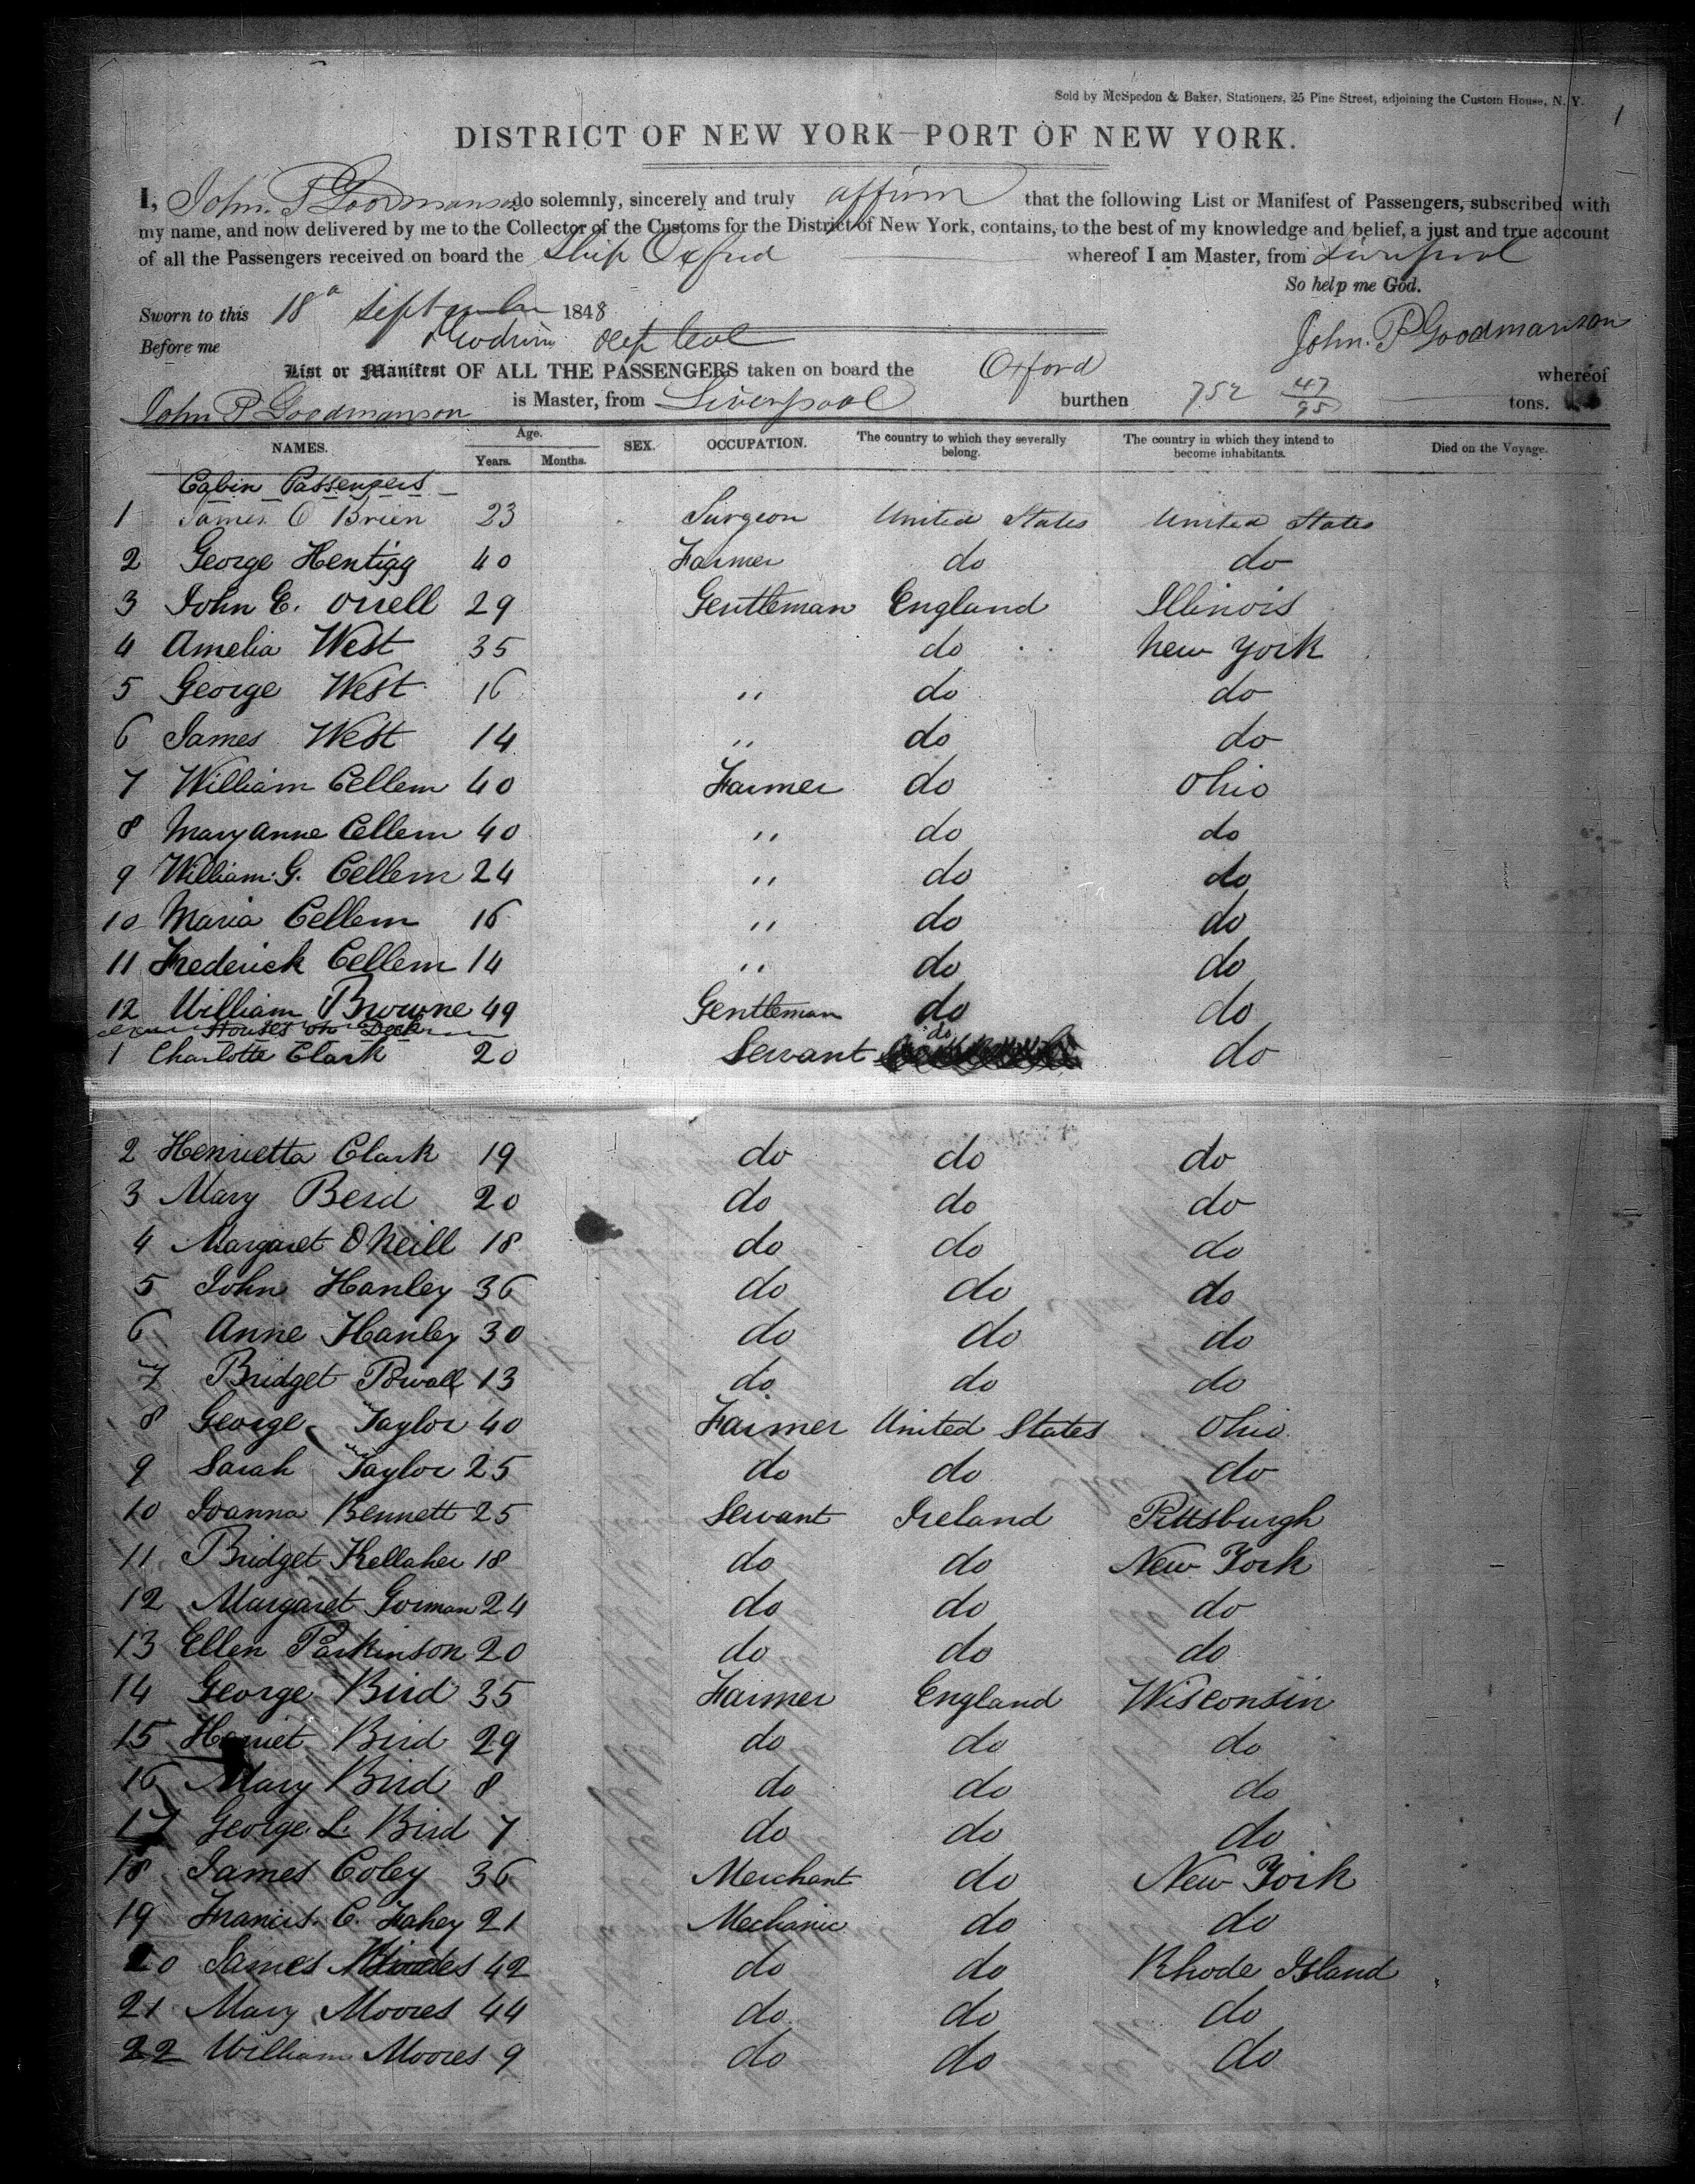 Sold by McSpedon & Baker, Stationers, 25 Pine Street, adjoining the Custom House, N. Y.
1
DISTRICT OF NEW YORK—PORT OF NEW YORK.
I, John. P Goodmanson do solemnly, sincerely and truly affirm that the following List or Manifest of Passengers, subscribed with
my name, and now delivered by me to the Collector of the Customs for the District of New York, contains, to the best of my knowledge and belief, a just and true account
of all the Passengers received on board the Ship Oxford whereof I am Master, from Liverpool
So help me God.
Sworn to this 18 September 1848
John. P Goodmanson
Before me
List or Manifest OF ALL THE PASSENGERS taken on board the Oxford whereof
John P Goodmanson is Master, from Liverpool burthen 752 47/95 tons.
NAMES. Age. Years. Months. SEX. OCCUPATION. The country to which they severally belong. The country in which they intend to become inhabitants. Died on the Voyage.
Cabin Passengers
1 James O Brien 23 Surgeon United States United States
2 George Hentigg 40 Farmer do do
3 John E. Orrell 29 Gentleman England Illinois
4 Amelia West 35 do New York
5 George West 16 " do do
6 James West 14 " do do
7 William Cellem 40 Farmer do Ohio
8 Mary Anne Cellem 40 " do do
9 William. G. Cellem 24 " do do
10 Maria Cellem 16 " do do
11 Frederick Cellem 14 " do do
12 William Browne 49 Gentleman do do
Houses on Deck
1 Charlotte Clark 20 Servant do do
2 Henrietta Clark 19 do do do
3 Mary Berd 20 do do do
4 Margaret O Neill 18 do do do
5 John Hanley 36 do do do
6 Anne Hanley 30 do do do
7 Bridget 13 do do do
8 George Taylor 40 Farmer United States Ohio
9 Sarah Taylor 25 do do do
10 Joanna Bennett 25 Servant Ireland Pittsburgh
11 Bridget Kellaher 18 do do New York
12 Margaret Gorman 24 do do do
13 Ellen Parkinson 20 do do do
14 George Bird 35 Farmer England Wisconsin
15 Harriet Bird 29 do do do
16 Mary Bird 8 do do do
17 George L Bird 7 do do do
18 James Coley 36 Merchant do New York
19 Francis. C. Fahey 21 Mechanic do do
20 James 42 do do Rhode Island
21 Mary Moores 44 do do do
22 William Moores 9 do do do